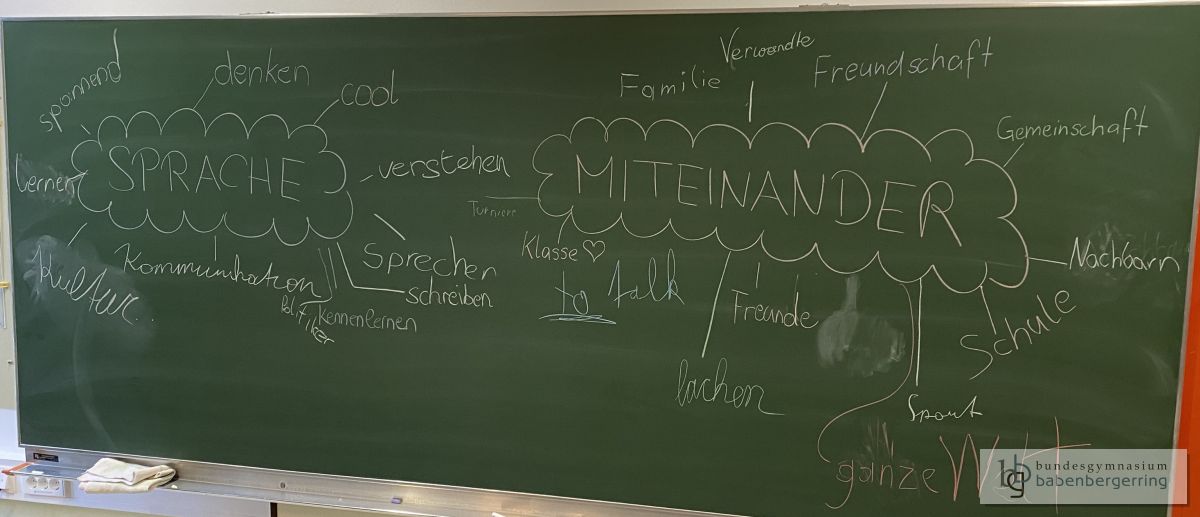 spannend
denken
cool
SPRACHE
verstehen
lernen
Kultur...
Kommunikation
Politiker
Kennenlernen
schreiben
Sprechen
Familie
Verwandte
Freundschaft
Gemeinschaft
MITEINANDER
Turniere
Klasse♡
to talk
Freunde
lachen
Nachbarn
Schule
Sport
ganze Welt
bundesgymnasium
babenbergerring